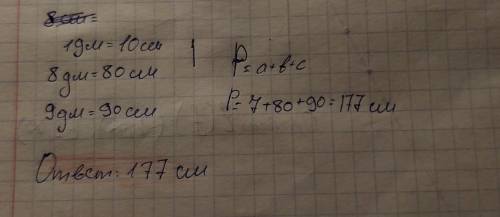 1дм=10см
8дм=80см
9дм=90см
P=a+b+c
P=7+80+90=177 см
Ответ: 177 см